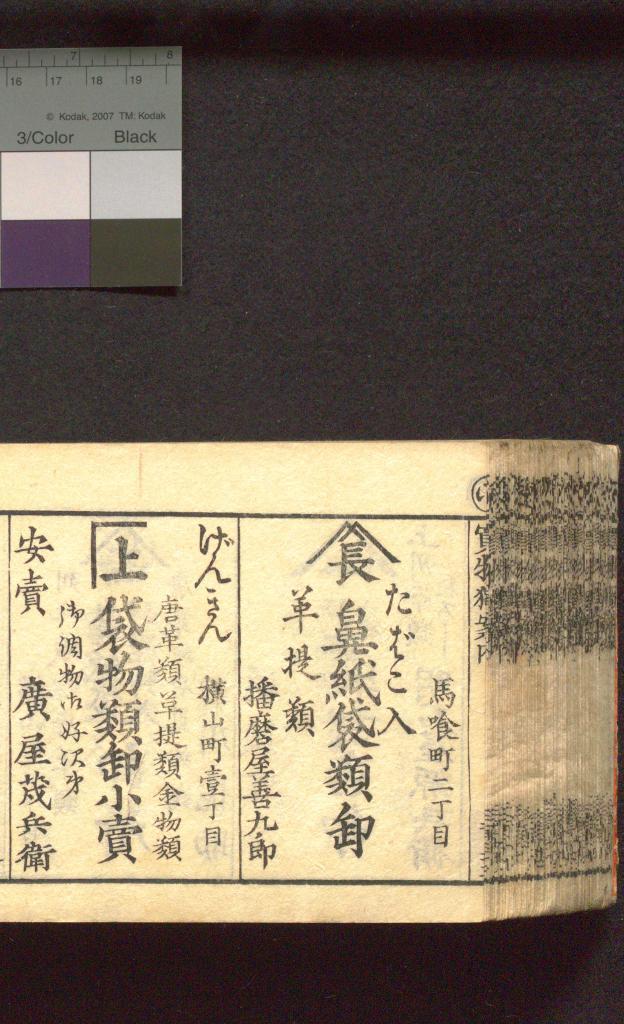 7 8
16 17 18 19
© Kodak, 2007 TM: Kodak
3/Color Black
買物獨案内
馬喰町二丁目
たばこ入
長 鼻紙袋類卸
革提類
播磨屋善九郎
げんきん 横山町壹丁目
唐革類草提類金物類
上 袋物類卸小賣
御調物御好次第
安賣 廣屋茂兵衛